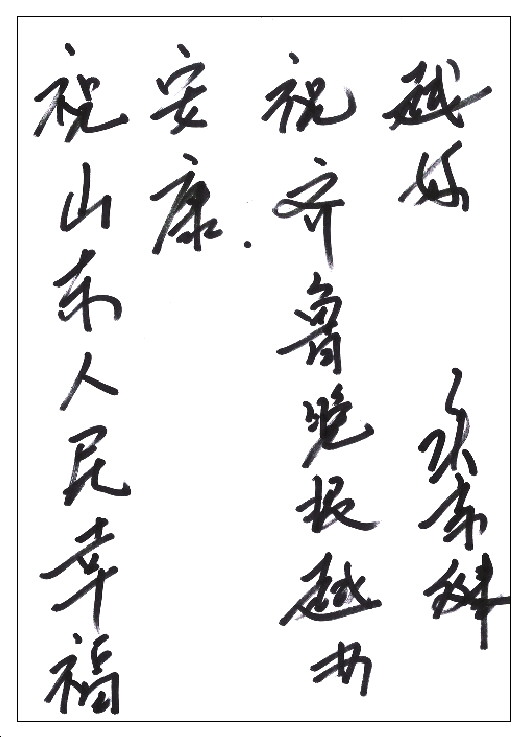 祝山东人民幸福
安康.
祝齐鲁晚报越办
越好